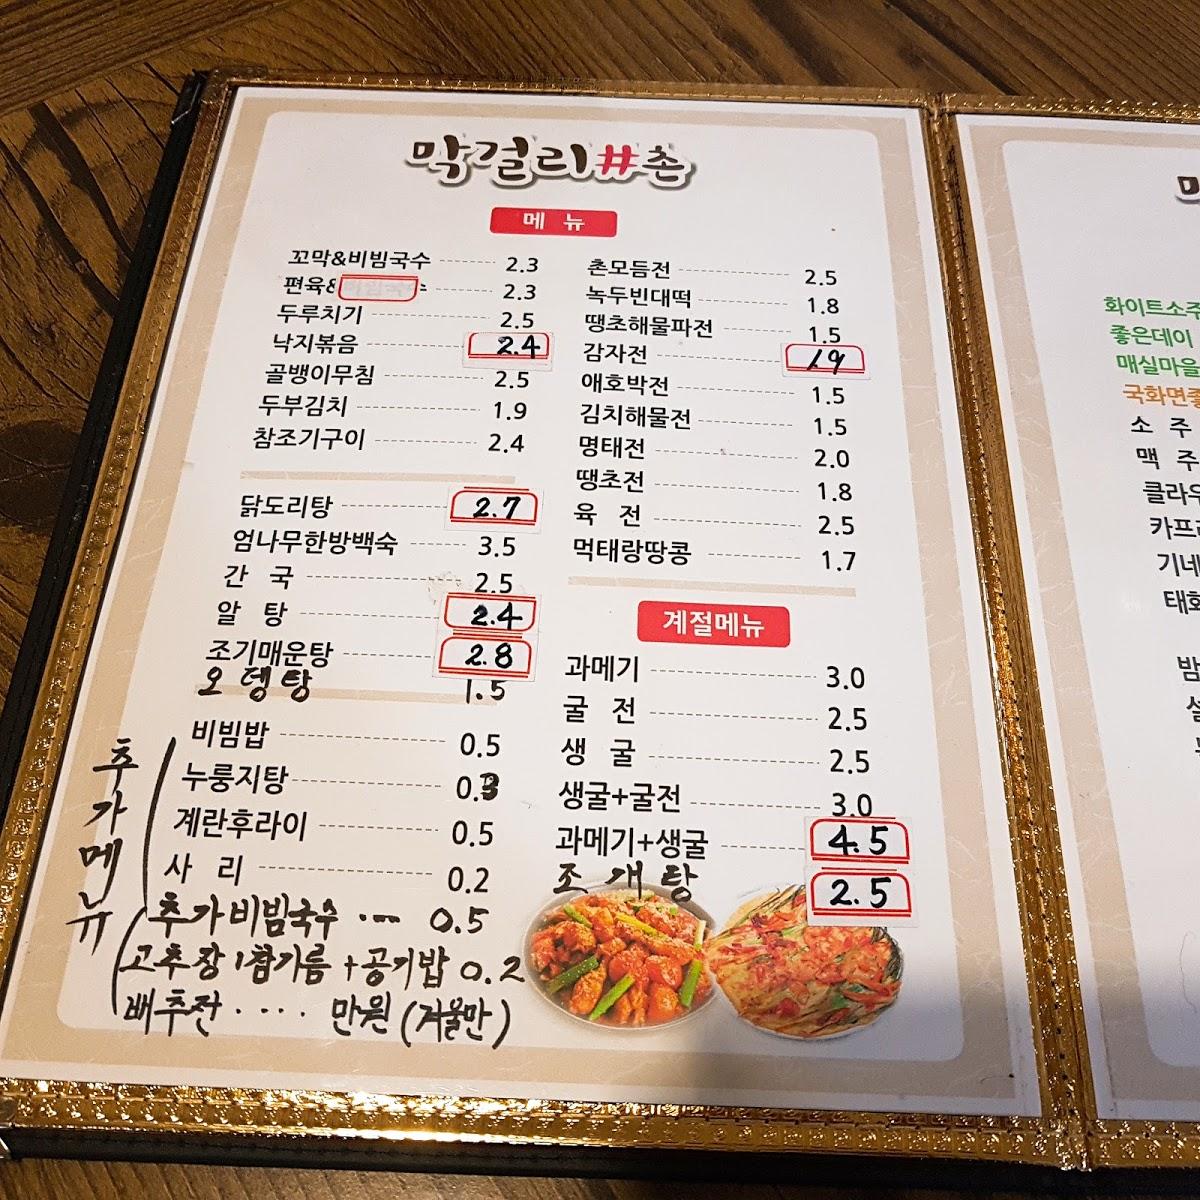 막걸리#촌
메 뉴
꼬막&비빔국수 2.3
편육& 2.3
두루치기 2.5
낙지볶음 2.4
골뱅이무침 2.5
두부김치 1.9
참조기구이 2.4
닭도리탕 2.7
엄나무한방백숙 3.5
간 국 2.5
알 탕 2.4
조기매운탕 2.8
오뎅탕 1.5
추가메뉴
비빔밥 0.5
누룽지탕 0.3
계란후라이 0.5
사 리 0.2
추가비빔국수 ···· 0.5
고추장,참기름+공기밥 0.2
배추전 ···· 만원 (겨울만)
촌모듬전 2.5
녹두빈대떡 1.8
땡초해물파전 1.5
감자전 1.9
애호박전 1.5
김치해물전 1.5
명태전 2.0
땡초전 1.8
육 전 2.5
먹태랑땅콩 1.7
계절메뉴
과메기 3.0
굴 전 2.5
생 굴 2.5
생굴+굴전 3.0
과메기+생굴 4.5
조개탕 2.5
화이트소주
좋은데이
매실마을
국화면
소 주
맥 주